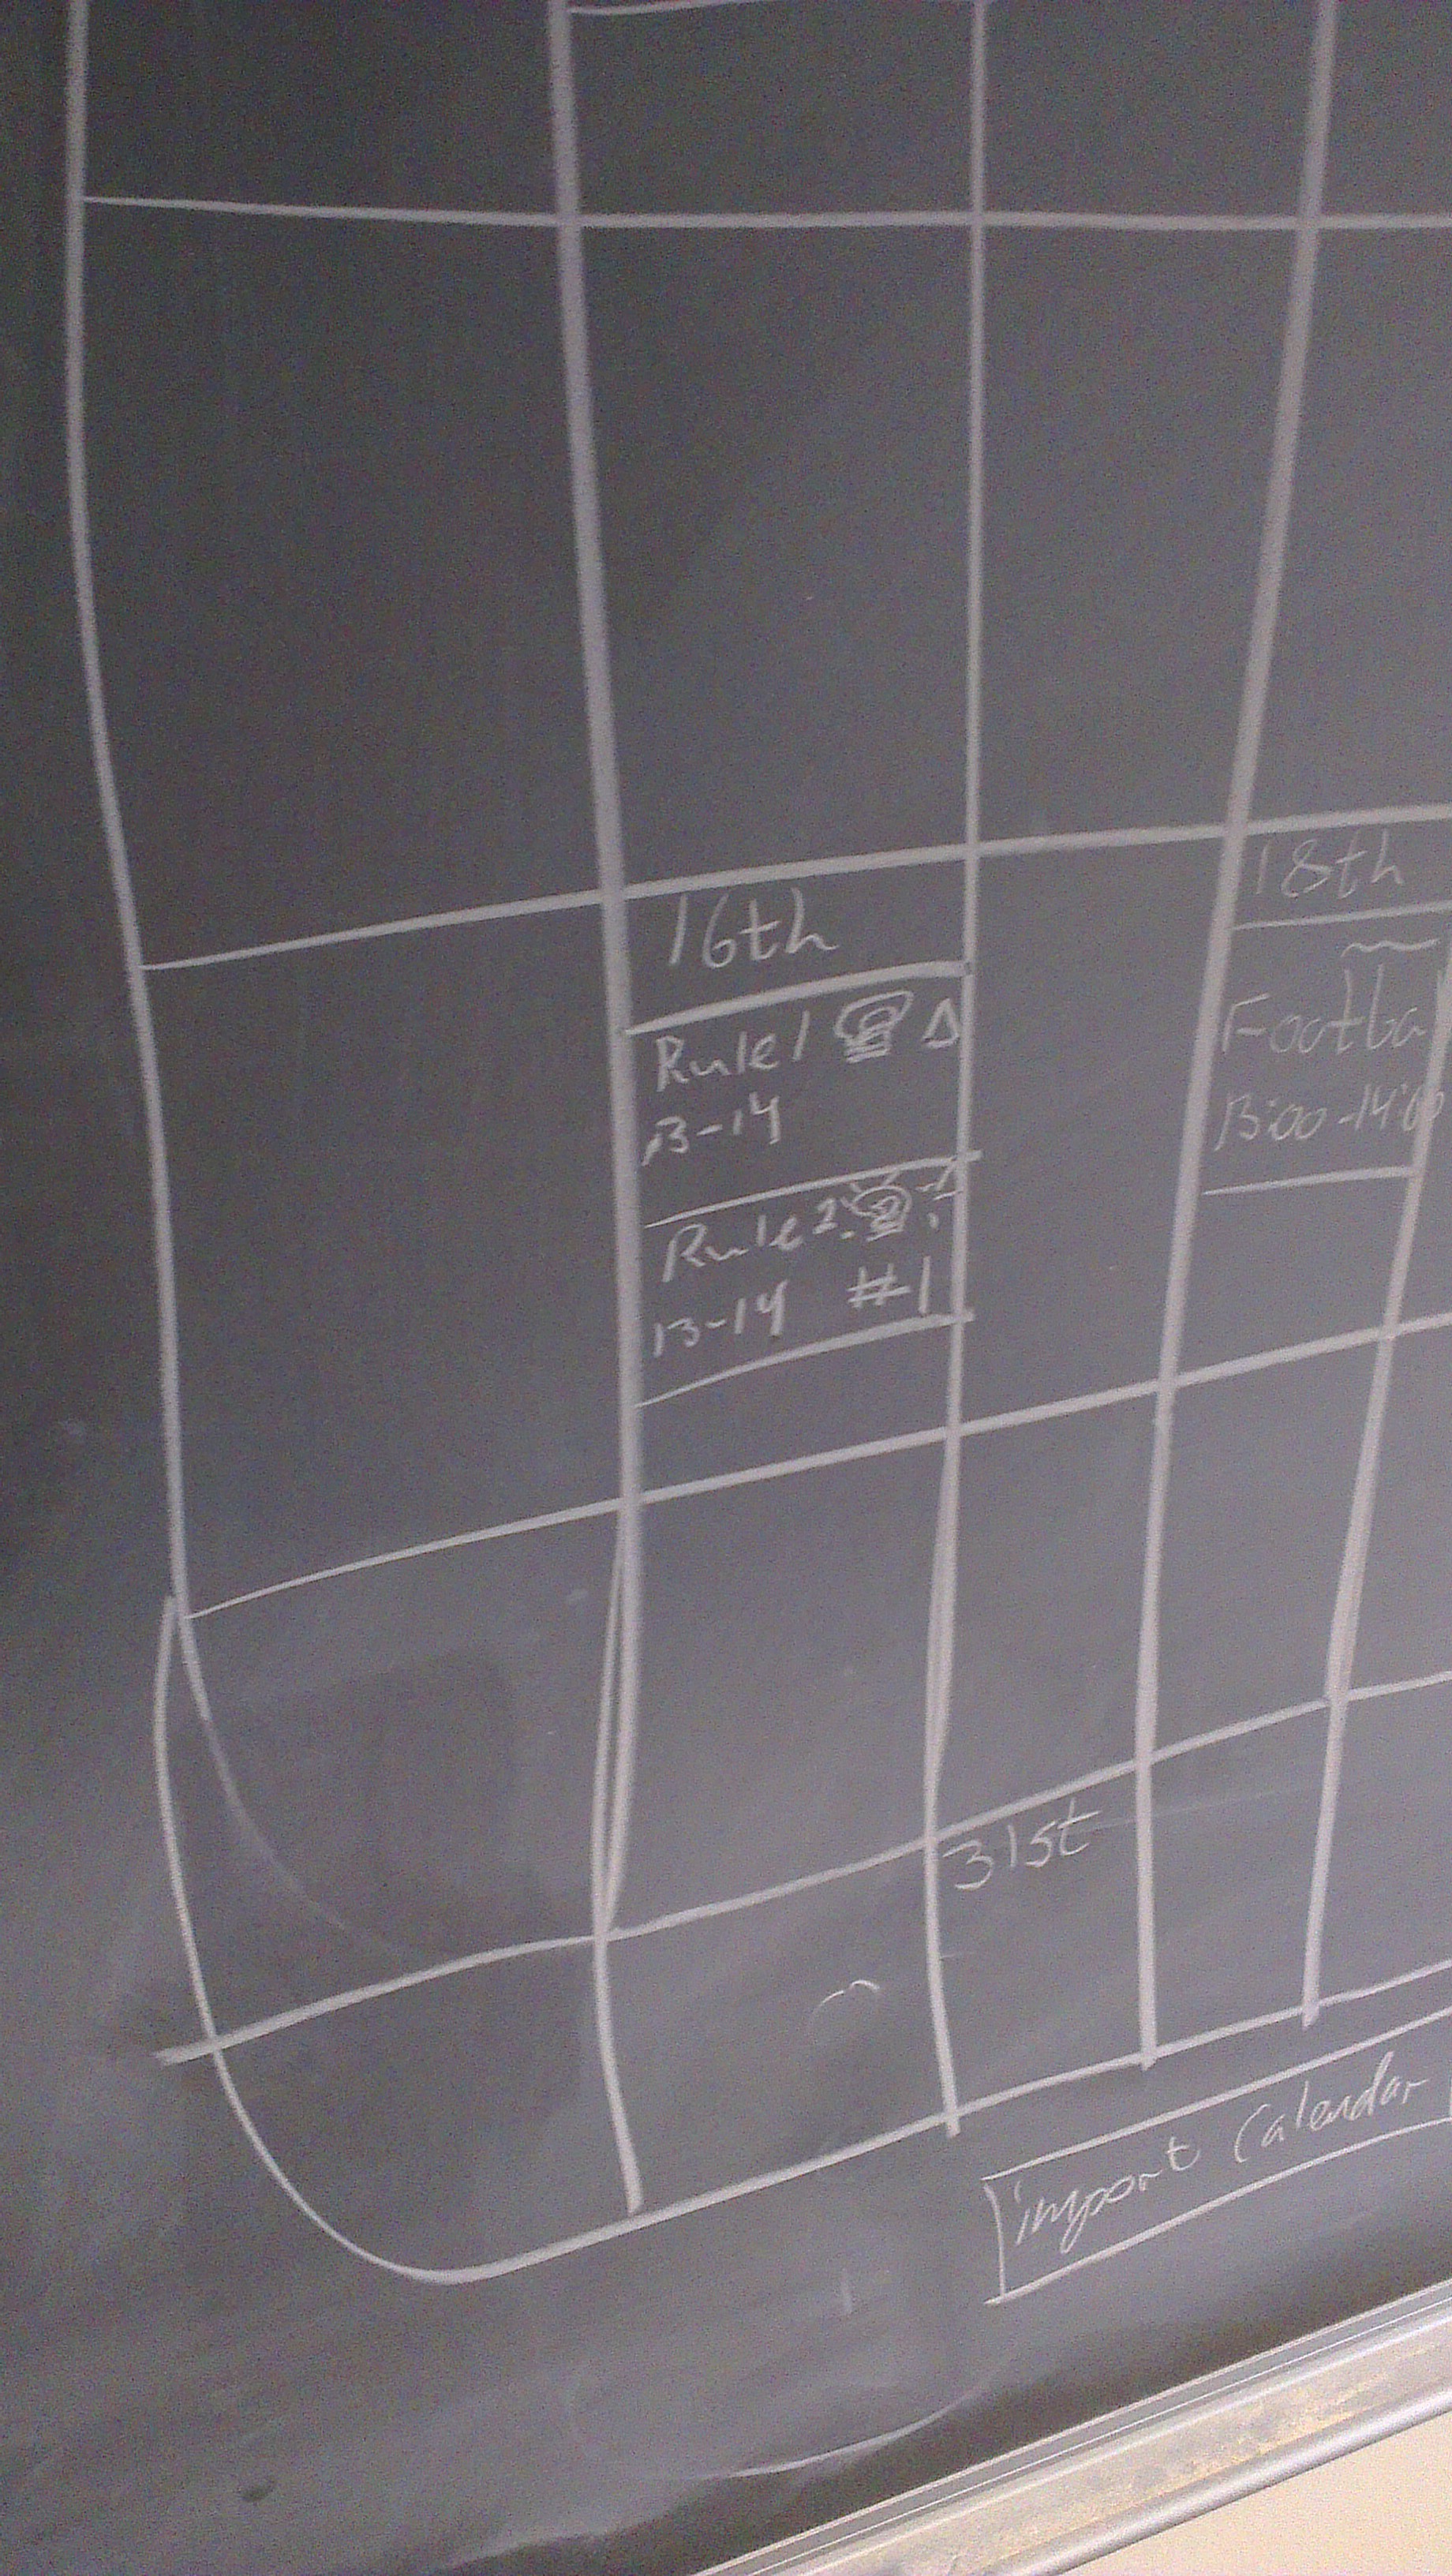 16th
Rule 1
13-14
Rule 2
13-14 #1
18th
Footba
13:00-14:00
31st
import Calendar